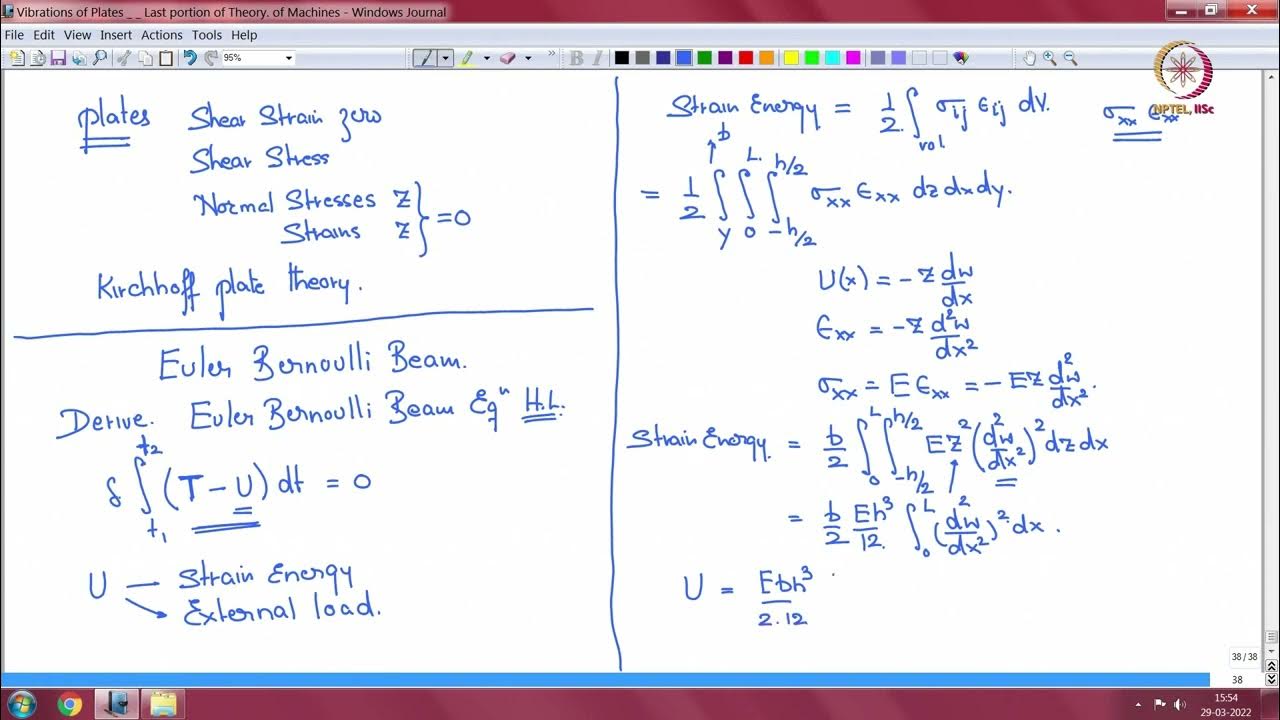 Vibrations of Plates _ _ Last portion of Theory. of Machines - Windows Journal
File Edit View Insert Actions Tools Help
95%
B I
NPTEL, IISc
plates Shear Strain zero
Shear Stress
Normal Stresses z
Strains z } = 0
Kirchhoff plate theory.
Euler Bernoulli Beam.
Derive. Euler Bernoulli Beam Eqⁿ H.L.
δ ∫_{t₁}^{t₂} (T – U) dt = 0
U — Strain Energy
External load.
Strain Energy = 1/2 ∫_{vol} σ_ij ϵ_ij dV. σ_xx ϵ_xx
= 1/2 ∫_y^{b} ∫_0^L ∫_{-h/2}^{h/2} σ_xx ϵ_xx dz dx dy.
U(x) = -z dw/dx
ϵ_xx = -z d²w/dx²
σ_xx = E ϵ_xx = - E z d²w/dx².
Strain Energy = b/2 ∫_0^L ∫_{-h/2}^{h/2} E z² (d²w/dx²)² dz dx
= b/2 Eh³/12. ∫_0^L (d²w/dx²)² dx.
U = Ebh³/2.12
38 / 38
38
15:54
29-03-2022